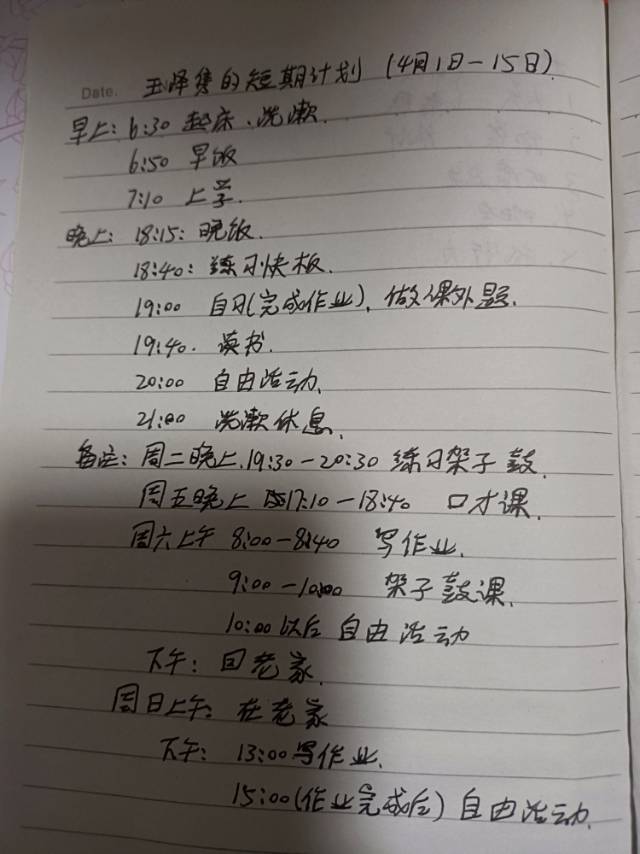 Date. 王泽隽的短期计划 (4月1日-15日)
早上: 6:30 起床、洗漱.
6:50 早饭
7:10 上学.
晚上: 18:15: 晚饭.
18:40: 练习快板.
19:00 自习(完成作业)、做课外题.
19:40. 读书.
20:00 自由活动.
21:00 洗漱休息.
备注: 周二晚上.19:30-20:30 练习架子鼓.
周五晚上 17:10-18:40 口才课.
周六上午 8:00-8:40 写作业.
9:00-10:00 架子鼓课.
10:00以后 自由活动
下午: 回老家.
周日上午: 在老家
下午: 13:00写作业.
15:00(作业完成后) 自由活动.